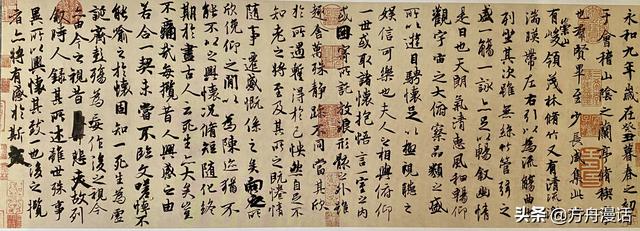 永和九年歲在癸丑暮春之初
于會稽山陰之蘭亭脩禊
也群賢畢至少長咸集此
有崇山峻領茂林脩竹又有清流
湍暎帶左右引以為流觴曲
列坐其次雖無絲竹管弦之
盛一觴一詠亦足以暢叙幽情
是日也天朗氣清惠風和暢仰
觀宇宙之大俯察品類之盛
所以遊目騁懷足以極視聽之
娛信可樂也夫人之相與俯仰
一世或取諸懷抱悟言一室之內
或因寄所託放浪形骸之外雖
趣舍萬殊靜躁不同當其欣
於所遇蹔得於己怏然自足不
知老之將至及其所之既惓情
隨事遷感慨係之矣向之所
欣俛仰之閒以為陳迹猶不
能不以之興懷況脩短隨化終
期於盡古人云死生亦大矣豈
不痛哉每攬昔人興感之由
若合一契未嘗不臨文嗟悼不
能喻之於懷固知一死生為虛
誕齊彭殤為妄作後之視今
亦由今之視昔悲夫故列
敘時人錄其所述雖世殊事
異所以興懷其致一也後之攬
者亦將有感於斯文
头条 @方舟漫话